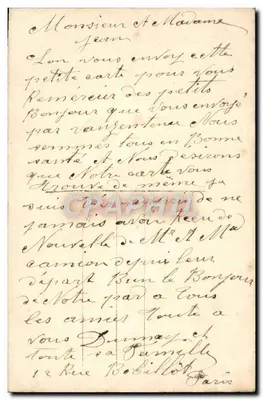 Monsieur et Madame
Jean
L'on vous envoy cette
petite carte pour vous
Remercier des petits
Bonjour que vous envoyé
par
sommes tous en Bonne
santé et Nous Desirons
que Notre carte vous
trouve de même je
suis de ne
jamais avoir reçu de
Nouvelle de Mr et Mme
depui leur
départ Bien le Bonjour
de Notre par a tous
les amies toute a
vous Dunnay et
toute sa famille
12 Rue Bobillot
Paris
CPAPHIL